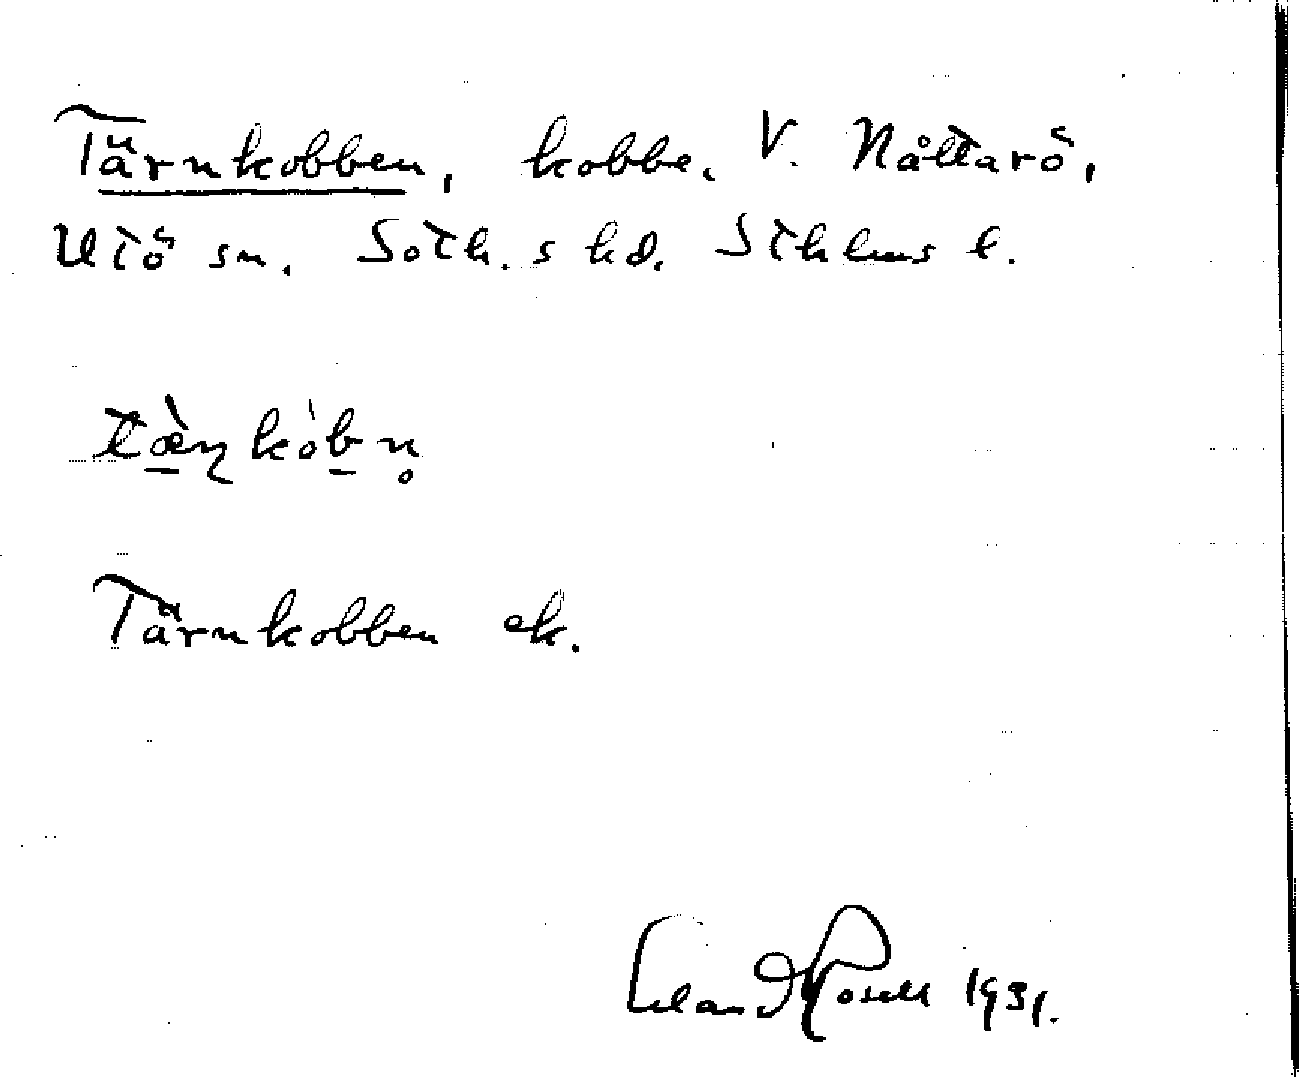 Tärnkobben, kobbe. V. Nåttarö,
Utö sn. Soth. s hd. Sthlms l.
tæ̀ɳkòbn̥
Tärnkobben ek.
Erland Rosell 1931.